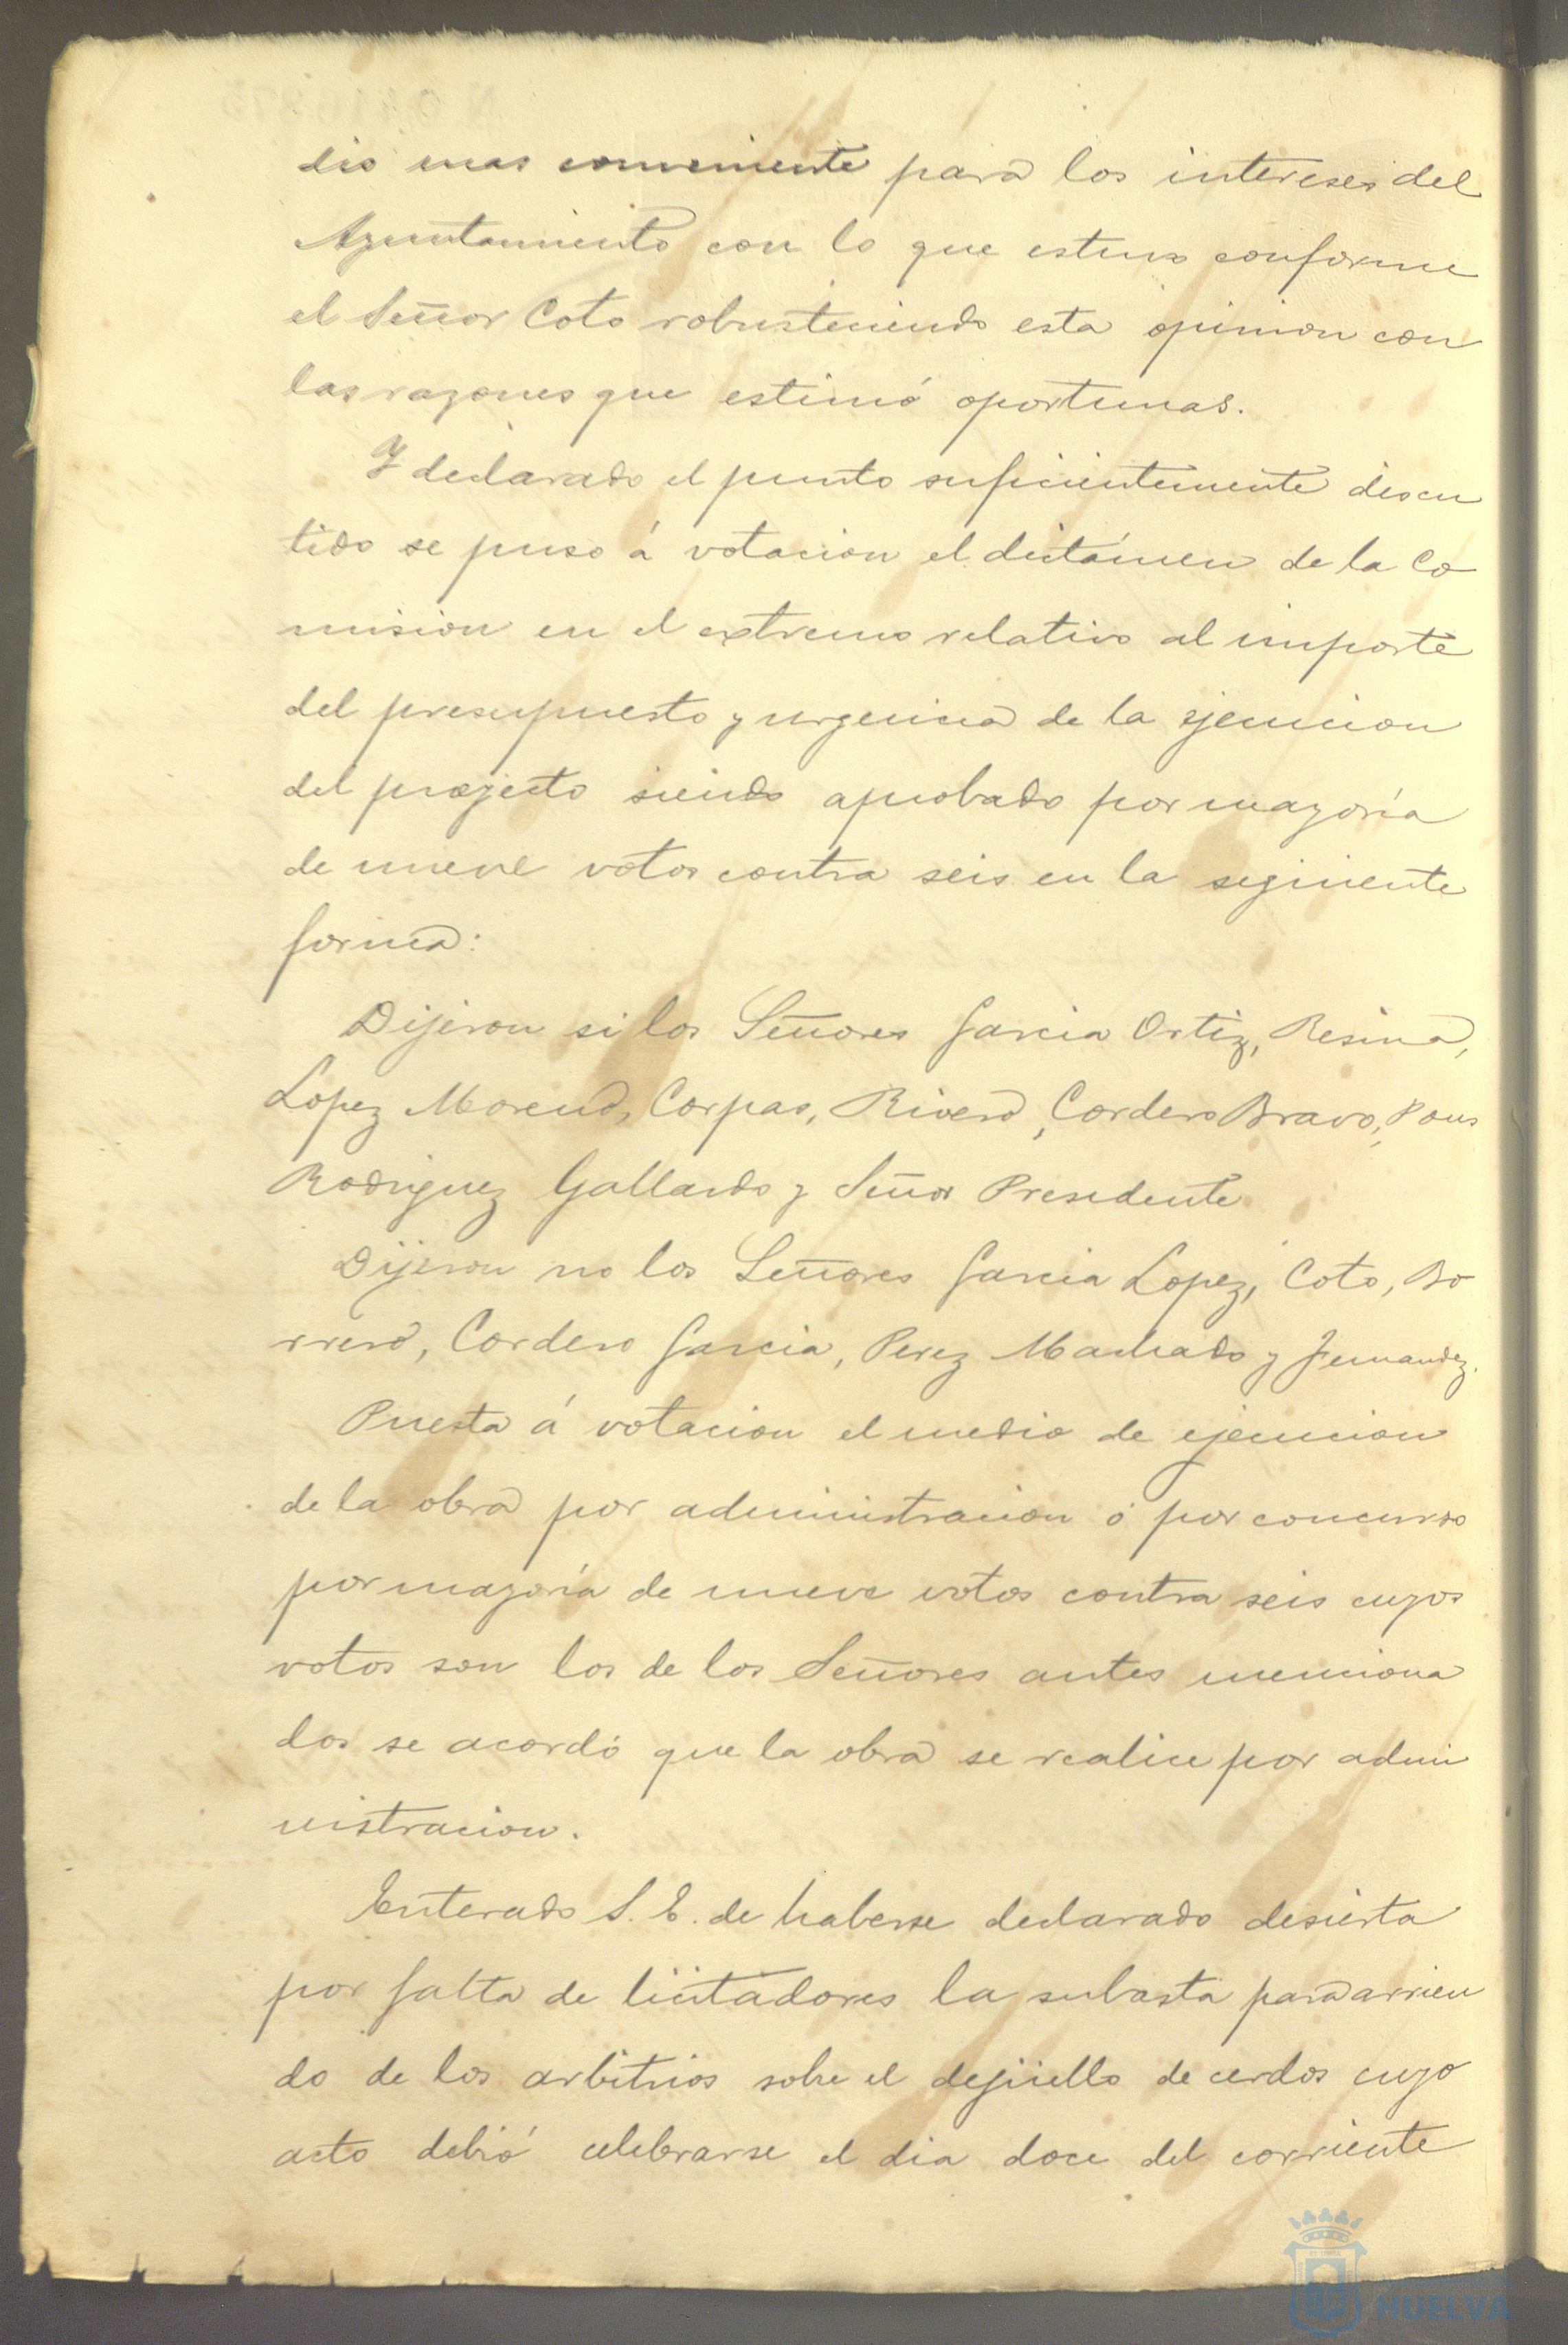 dio mas conveniente para los intereses del
Ayuntamiento con lo que estuvo conforme
el Señor Coto robusteciendo esta opinion con
las razones que estimó oportunas.
Y declarado el punto suficientemente discu
tido se puso á votacion el dictámen de la Co
mision en el extremo relativo al importe
del presupuesto y urgencia de la ejecucion
del proyecto siendo aprobado por mayoría
de nueve votos contra seis en la siguiente
forma:
Dijeron si los Señores Garcia Ortiz, Resina,
Lopez Moreno, Corpas, Rivero, Cordero Bravo, Pons
Rodriguez Gallardo y Señor Presidente
Dijeron no los Señores Garcia Lopez, Coto, Bo
rrero, Cordero Garcia, Perez Machado y Fernandez.
Puesta á votacion el medio de ejecucion
de la obra por administracion ó por concurso
por mayoría de nueve votos contra seis cuyos
votos son los de los Señores antes menciona
dos se acordó que la obra se realice por admi
nistracion.
Enterado S. E. de haberse declarado desierta
por falta de licitadores la subasta para arrien
do de los arbitrios sobre el degüello de cerdos cuyo
acto debió celebrarse el dia doce del corriente
HUELVA